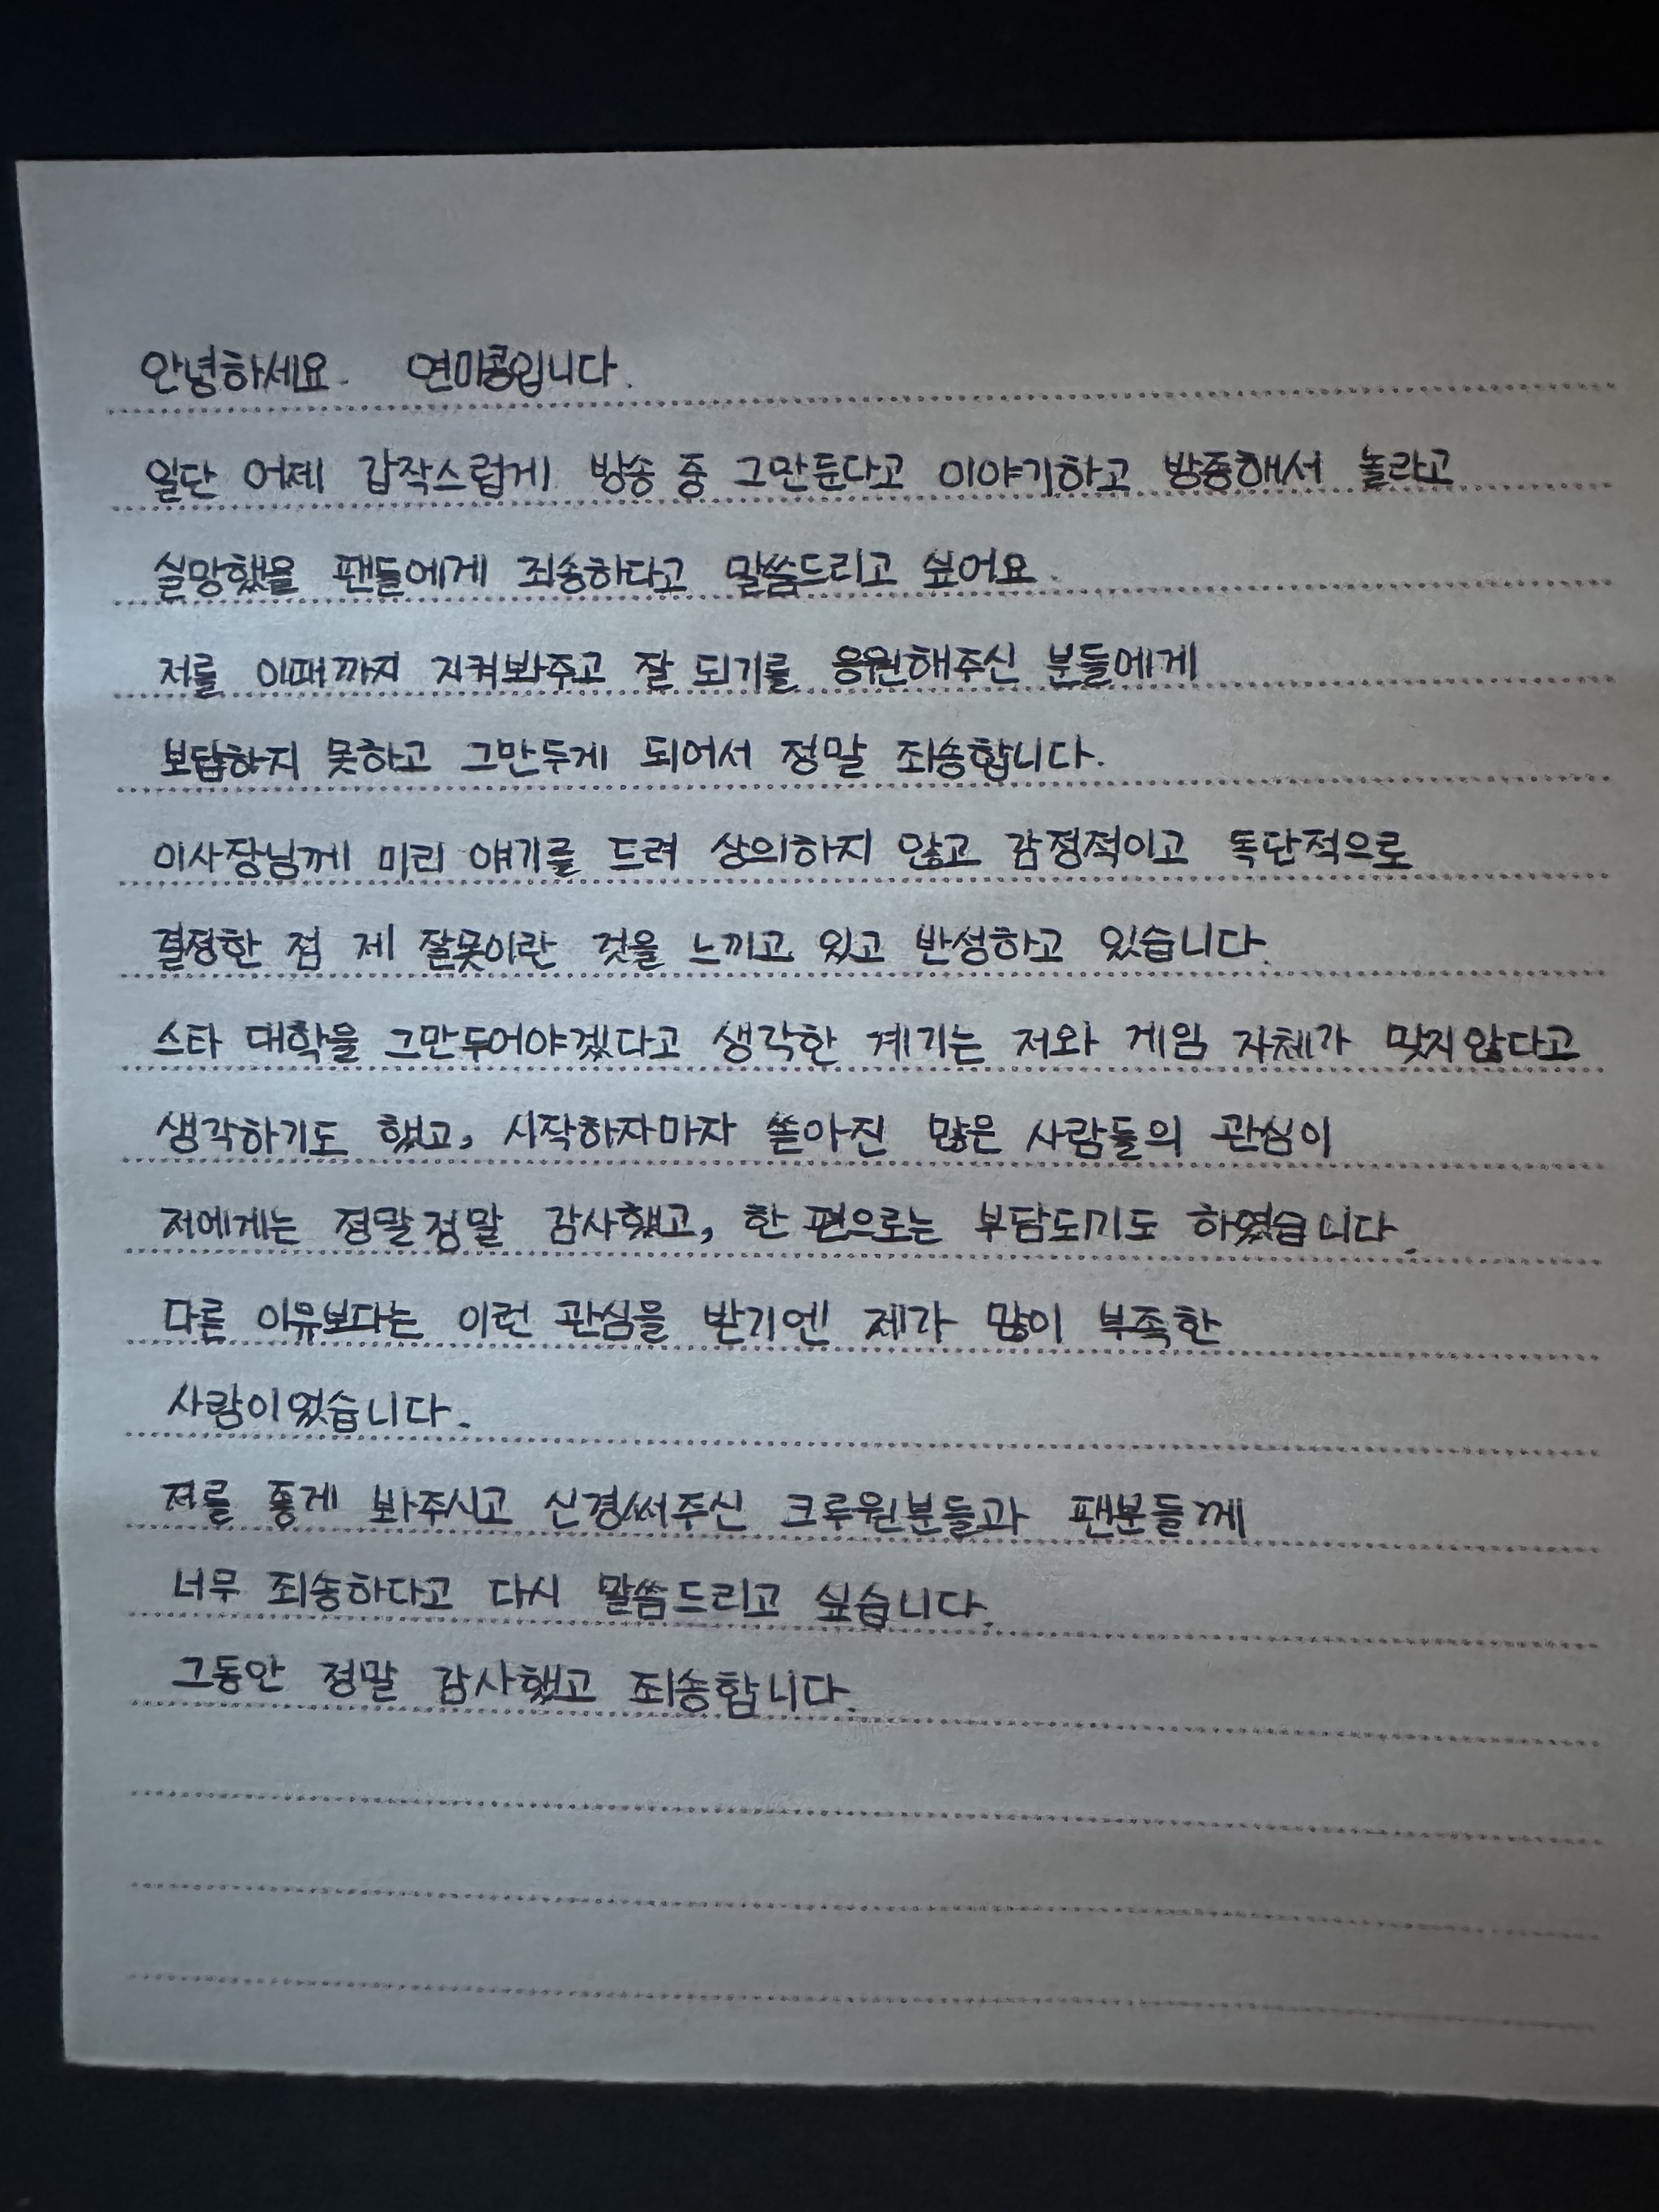 안녕하세요. 연미콩입니다.
일단 어제 갑작스럽게 방송 중 그만둔다고 이야기하고 방종해서 놀라고
실망했을 팬들에게 죄송하다고 말씀드리고 싶어요.
저를 이때까지 지켜봐주고 잘 되기를 응원해주신 분들에게
보답하지 못하고 그만두게 되어서 정말 죄송합니다.
이사장님께 미리 얘기를 드려 상의하지 않고 감정적이고 독단적으로
결정한 점 제 잘못이란 것을 느끼고 있고 반성하고 있습니다.
스타 대학을 그만두어야겠다고 생각한 계기는 저와 게임 자체가 맞지않다고
생각하기도 했고, 시작하자마자 쏟아진 많은 사람들의 관심이
저에게는 정말정말 감사했고, 한 편으로는 부담되기도 하였습니다.
다른 이유보다는 이런 관심을 받기엔 제가 많이 부족한
사람이었습니다.
저를 좋게 봐주시고 신경써주신 크루원분들과 팬분들께
너무 죄송하다고 다시 말씀드리고 싶습니다.
그동안 정말 감사했고 죄송합니다.